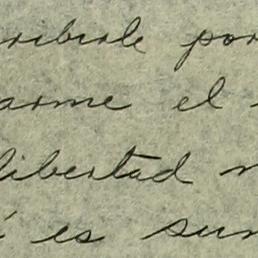 ribirle por
arme el
libertad
es sum